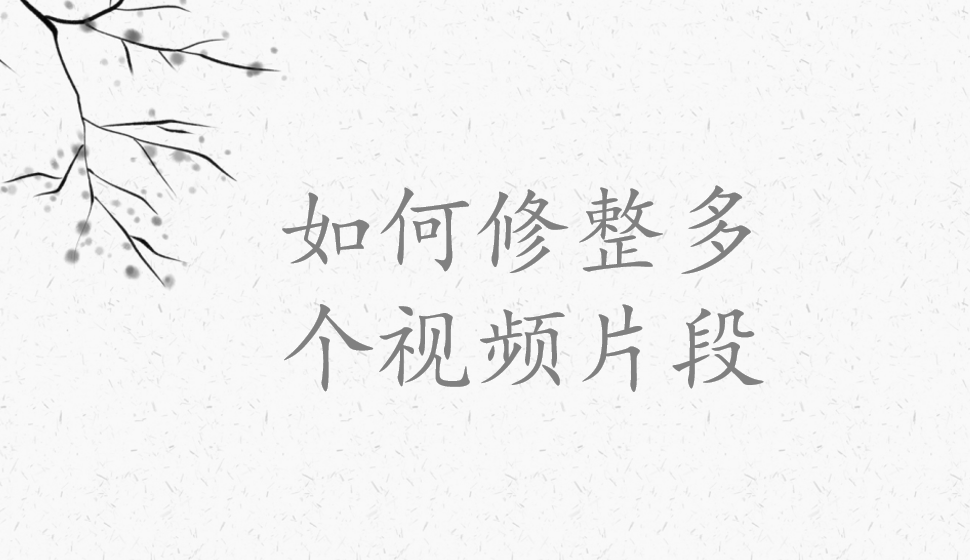 如何修整多
个视频片段